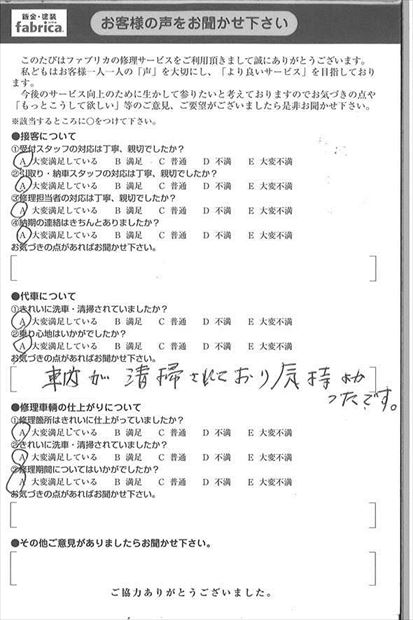 鈑金・塗装
fabrica.
お客様の声をお聞かせ下さい
このたびはファブリカの修理サービスをご利用頂きまして誠にありがとうございます。
私どもはお客様一人一人の「声」を大切にし、「より良いサービス」を目指しており
ます。
今後のサービス向上のために生かして参りたいと考えておりますのでお気づきの点や
「もっとこうして欲しい」等のご意見、ご要望がございましたら是非お聞かせ下さい。
※該当するところに○をつけて下さい。
●接客について
①受付スタッフの対応は丁寧、親切でしたか?
A 大変満足している B 満足 C 普通 D 不満 E 大変不満
②引取り・納車スタッフの対応は丁寧、親切でしたか?
A 大変満足している B 満足 C 普通 D 不満 E 大変不満
③修理担当者の対応は丁寧、親切でしたか?
A 大変満足している B 満足 C 普通 D 不満 E 大変不満
④納期の連絡はきちんとありましたか?
A 大変満足している B 満足 C 普通 D 不満 E 大変不満
お気づきの点があればお聞かせ下さい。
●代車について
①きれいに洗車・清掃されていましたか?
A 大変満足している B 満足 C 普通 D 不満 E 大変不満
②乗り心地はいかがでしたか?
A 大変満足している B 満足 C 普通 D 不満 E 大変不満
お気づきの点があればお聞かせ下さい。
車内が清掃されており気持よか
ったです。
●修理車輌の仕上がりについて
①修理箇所はきれいに仕上がっていましたか?
A 大変満足している B 満足 C 普通 D 不満 E 大変不満
②きれいに洗車・清掃されていましたか?
A 大変満足している B 満足 C 普通 D 不満 E 大変不満
③修理期間についてはいかがでしたか?
A 大変満足している B 満足 C 普通 D 不満 E 大変不満
お気づきの点があればお聞かせ下さい。
●その他ご意見がありましたらお聞かせ下さい。
ご協力ありがとうございました。